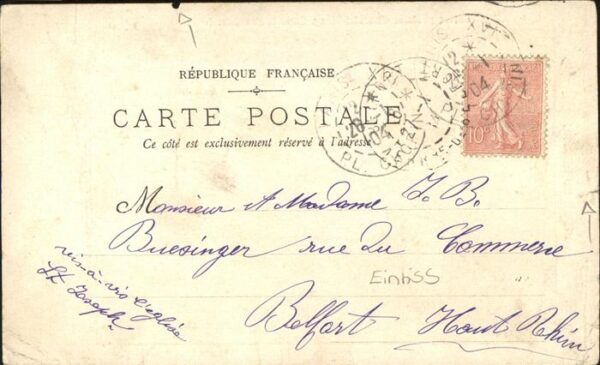 RÉPUBLIQUE FRANÇAISE
CARTE POSTALE
Ce côté est exclusivement réservé à l'adresse
PL. CHOPIN
04
10
Monsieur et Madame J. B.
Buesinger rue du Commerce
Einriss
Belfort Haut Rhin
vis-à-vis l'église
St Joseph